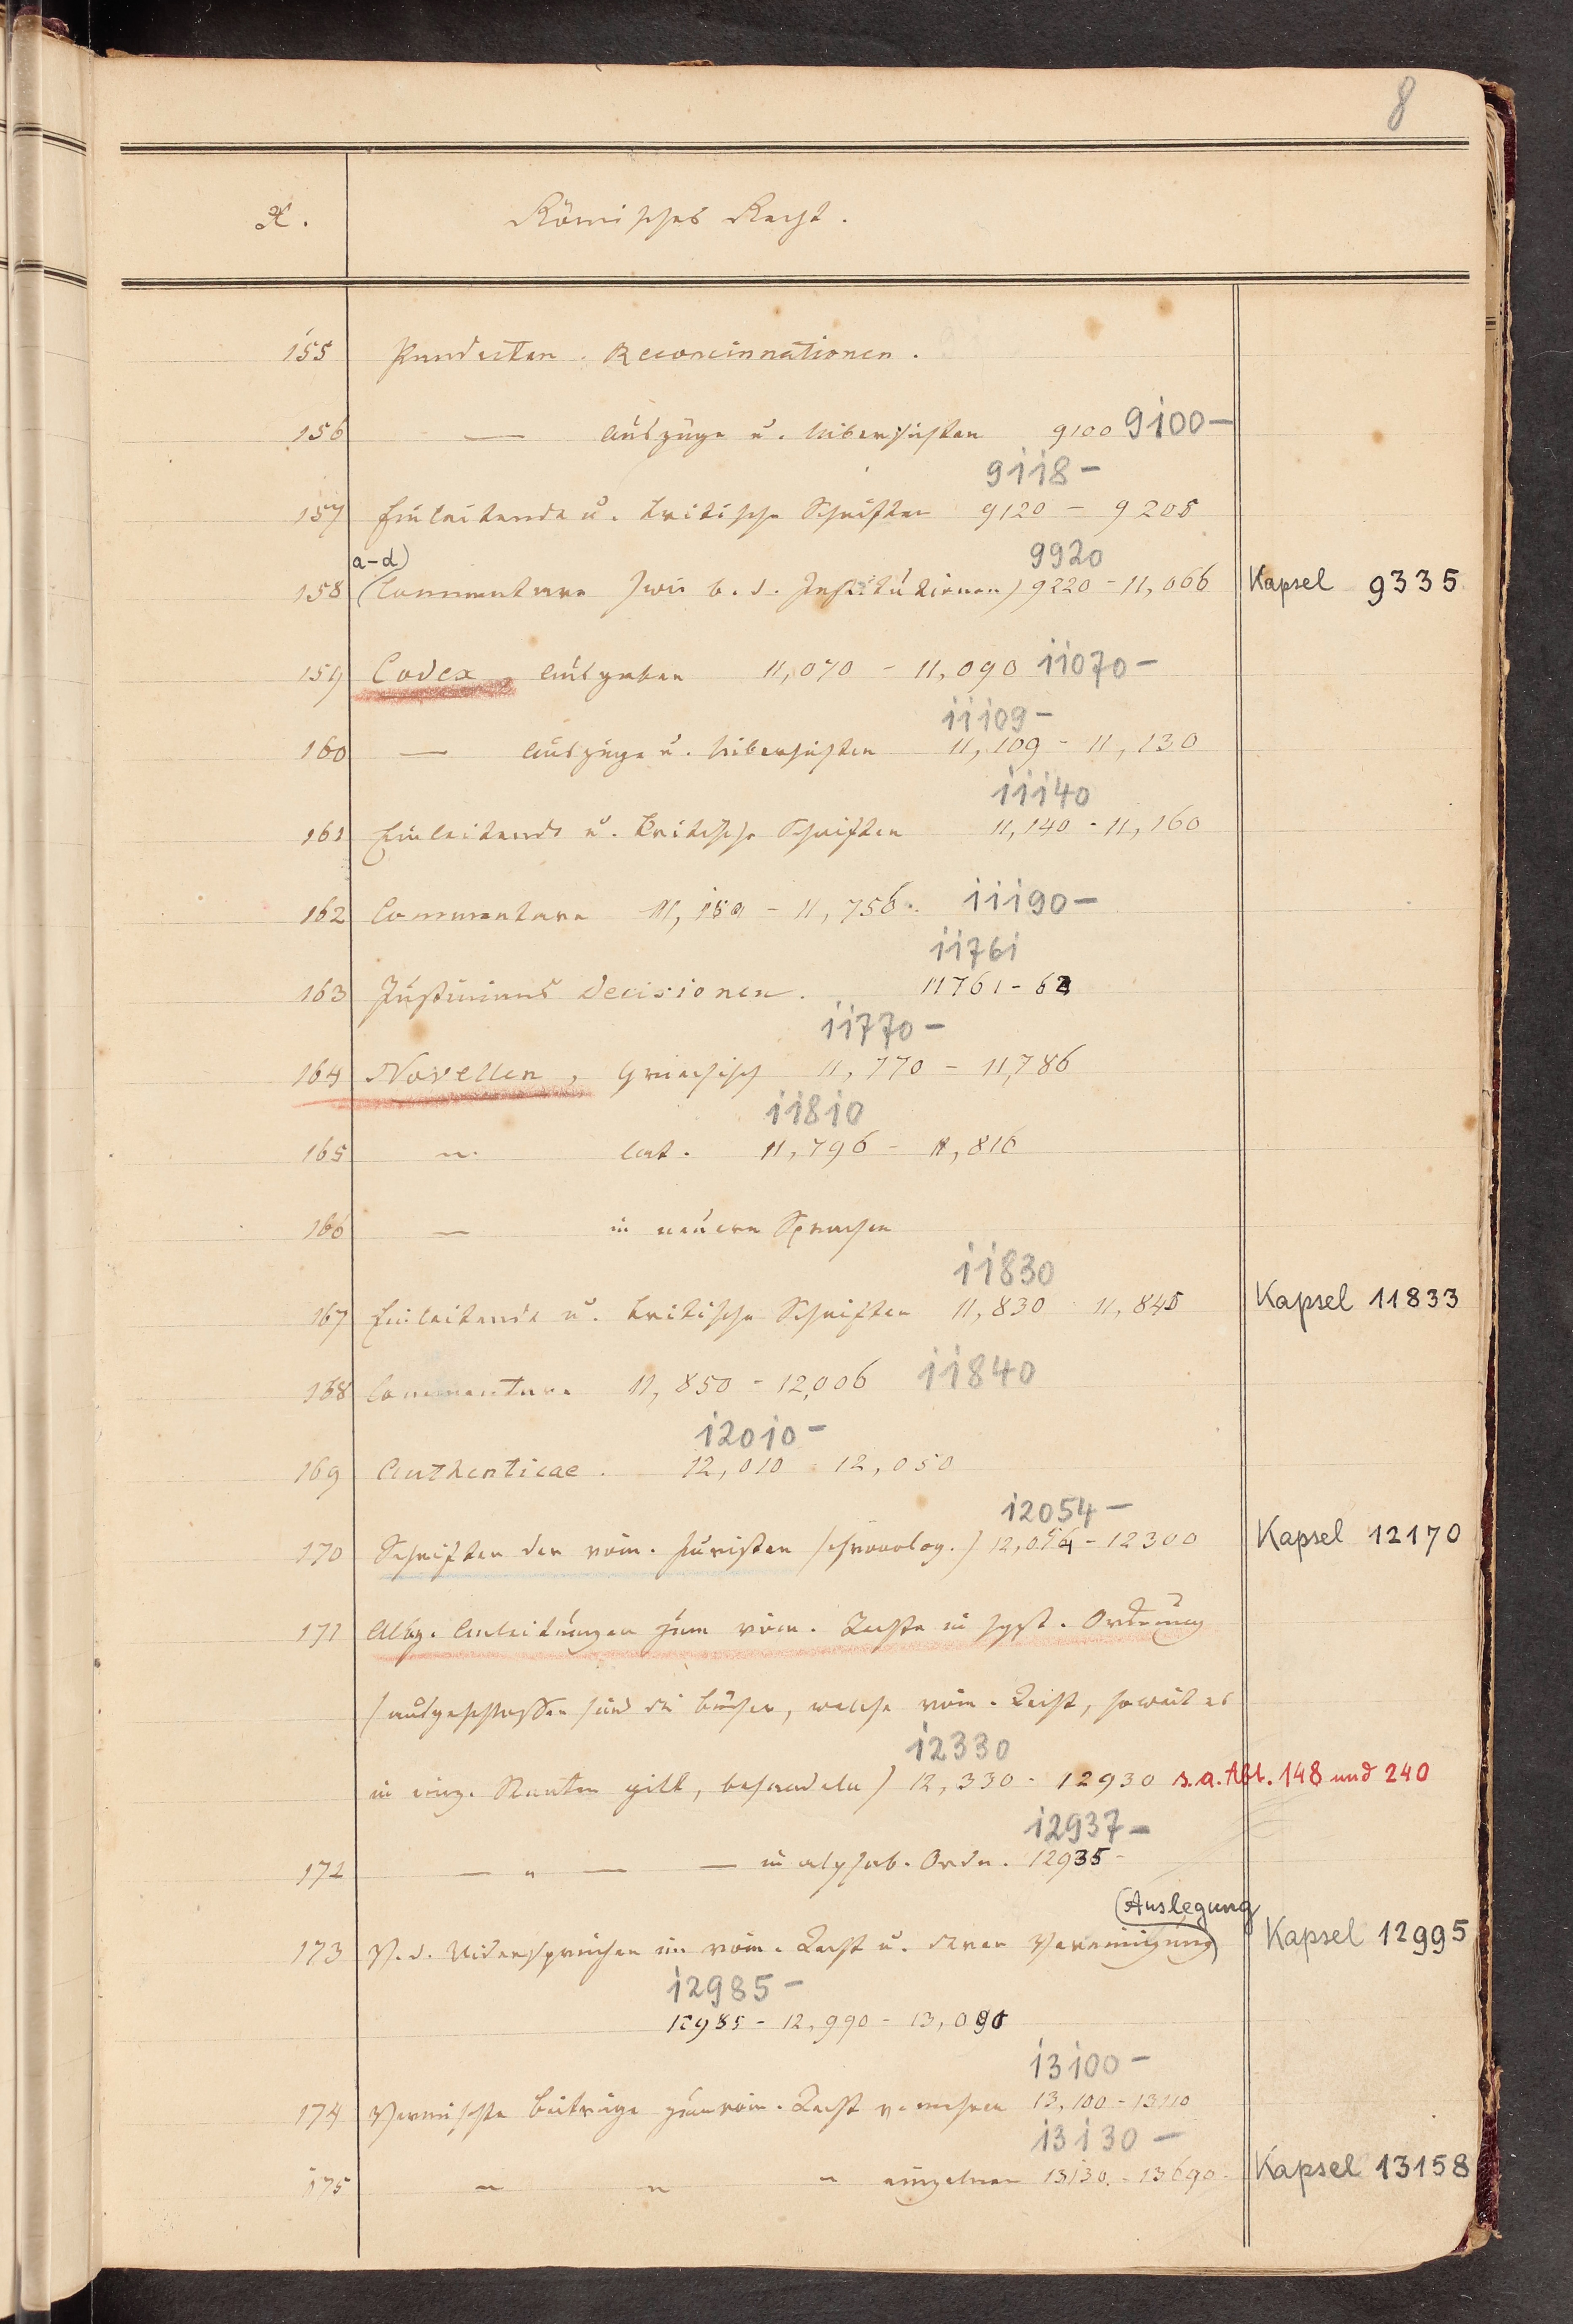 8
X. Römisches Recht.
155 Pandecten. Reconcinnationen.
156 — Auszüge u. Uibersichten 9100 9100-
9118-
157 Einleitende u. kritische Schriften 9120 - 9205
a-d) 9920
158 (Commentare (wie b. d. Institutionen) 9220 - 11,066 Kapsel 9335
159 Codex, Ausgaben 11,070 - 11,090 11070-
11109-
160 — Auszüge u. Uibersichten 11,109 - 11,130
11140
161 Einleitende u. kritische Schriften 11,140 - 11,160
162 Commentare 11,150 - 11,756. 11190-
11761
163 Justinians Decisionen. 11761 - 62
11770-
164 Novellen, Griechisch 11,770 - 11,786
11810
165 " lat. 11,796 - 11,816
166 — in neuern Sprachen
11830
167 Einleitende u. kritische Schriften 11,830 11,845 Kapsel 11833
168 Commentare 11,850 - 12,006 11840
12010-
169 Authenticae. 12,010 - 12,050
12054-
170 Schriften der röm. Juristen (chronolog.) 12,054 - 12300 Kapsel 12170
171 Allg. Anleitungen zum röm. Rechte in syst. Ordnung
(ausgeschlossen sind die Bücher, welche röm. Recht, soweit es
12330
in einz. Staaten gilt, behandeln) 12,330 - 12930 s.a. Abt. 148 und 240
12937-
172 — " — — in alphab. Ordn. 12935-
(Auslegung
173 V. d. Widersprüchen im röm. Recht u. deren Vereinigung) Kapsel 12995
12985-
12985 - 12,990 - 13,090
13100-
174 Vermischte Beiträge zum röm. Recht v. mehren 13,100 - 13110
13130-
175 " " " einzelnen 13130. - 13690- Kapsel 13158